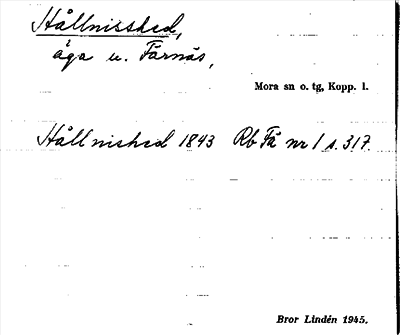 Hållnisshed,
äga u. Färnäs,
Mora sn o. tg, Kopp. l.
Hållnished 1843 Rb Få nr 1 s. 317.
Bror Lindén 1945.